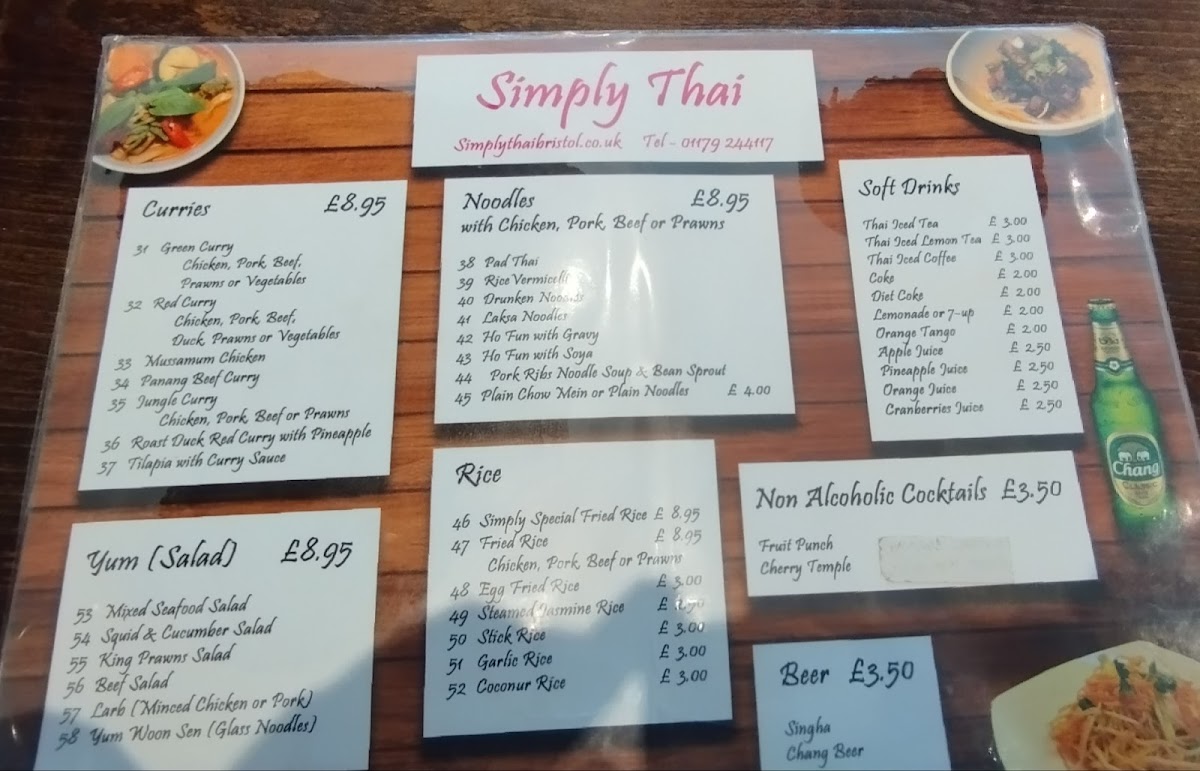 Simply Thai
Simplythaibristol.co.uk Tel - 01179 244117
Curries £8.95
31 Green Curry
Chicken, Pork, Beef,
Prawns or Vegetables
32 Red Curry
Chicken, Pork, Beef,
Duck, Prawns or Vegetables
33 Mussamum Chicken
34 Panang Beef Curry
35 Jungle Curry
Chicken, Pork, Beef or Prawns
36 Roast Duck Red Curry with Pineapple
37 Tilapia with Curry Sauce
Yum (Salad) £8.95
53 Mixed Seafood Salad
54 Squid & Cucumber Salad
55 King Prawns Salad
56 Beef Salad
57 Larb (Minced Chicken or Pork)
58 Yum Woon Sen (Glass Noodles)
Noodles £8.95
with Chicken, Pork, Beef or Prawns
38 Pad Thai
39 Rice Vermicelli
40 Drunken Noodles
41 Laksa Noodles
42 Ho Fun with Gravy
43 Ho Fun with Soya
44 Pork Ribs Noodle Soup & Bean Sprout
45 Plain Chow Mein or Plain Noodles £ 4.00
Rice
46 Simply Special Fried Rice £ 8.95
47 Fried Rice £ 8.95
Chicken, Pork, Beef or Prawns
48 Egg Fried Rice £ 3.00
49 Steamed Jasmine Rice £
50 Stick Rice £ 3.00
51 Garlic Rice £ 3.00
52 Coconur Rice £ 3.00
Soft Drinks
Thai Iced Tea £ 3.00
Thai Iced Lemon Tea £ 3.00
Thai Iced Coffee £ 3.00
Coke £ 2.00
Diet Coke £ 2.00
Lemonade or 7-up £ 2.00
Orange Tango £ 2.00
Apple Juice £ 2.50
Pineapple Juice £ 2.50
Orange Juice £ 2.50
Cranberries Juice £ 2.50
Non Alcoholic Cocktails £3.50
Fruit Punch
Cherry Temple
Beer £3.50
Singha
Chang Beer
Chang
CLASSIC